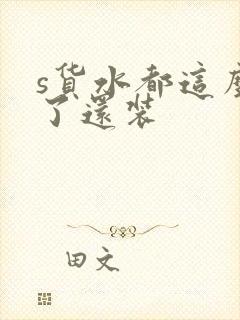 s货水都這麼
了還装
田文